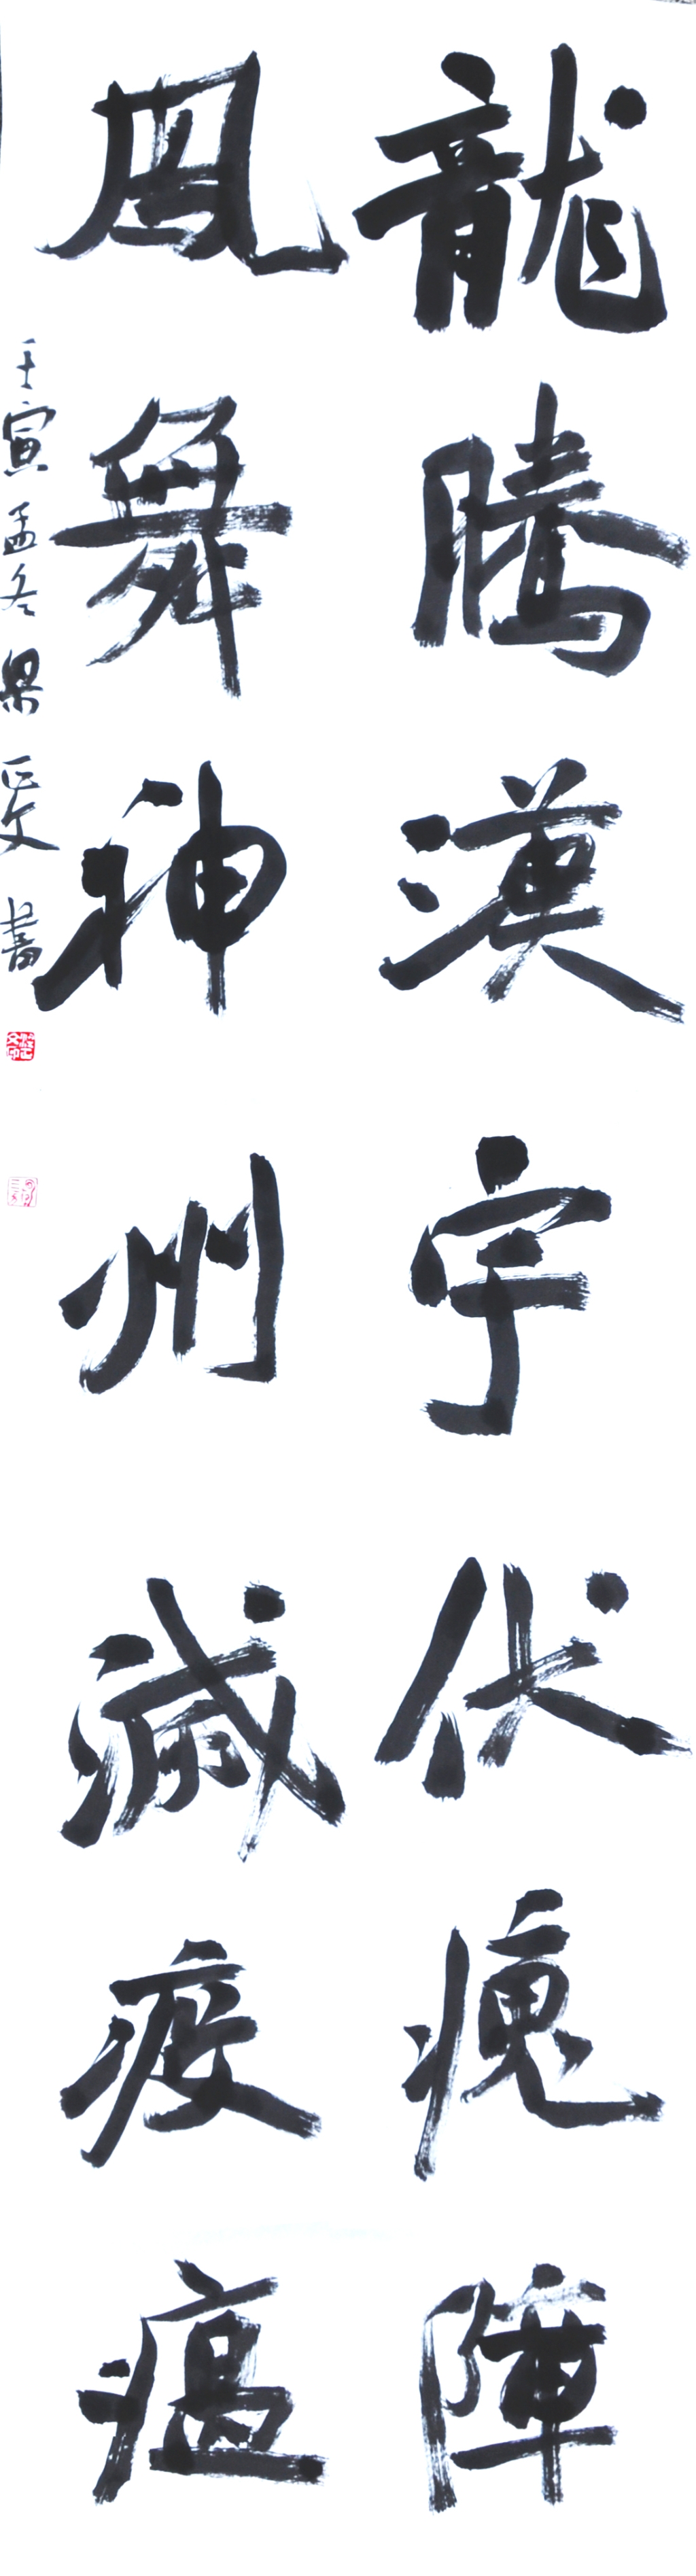 龍騰漢宇伏瘣障
鳳舞神州滅疫瘟
壬寅孟冬梁正文書